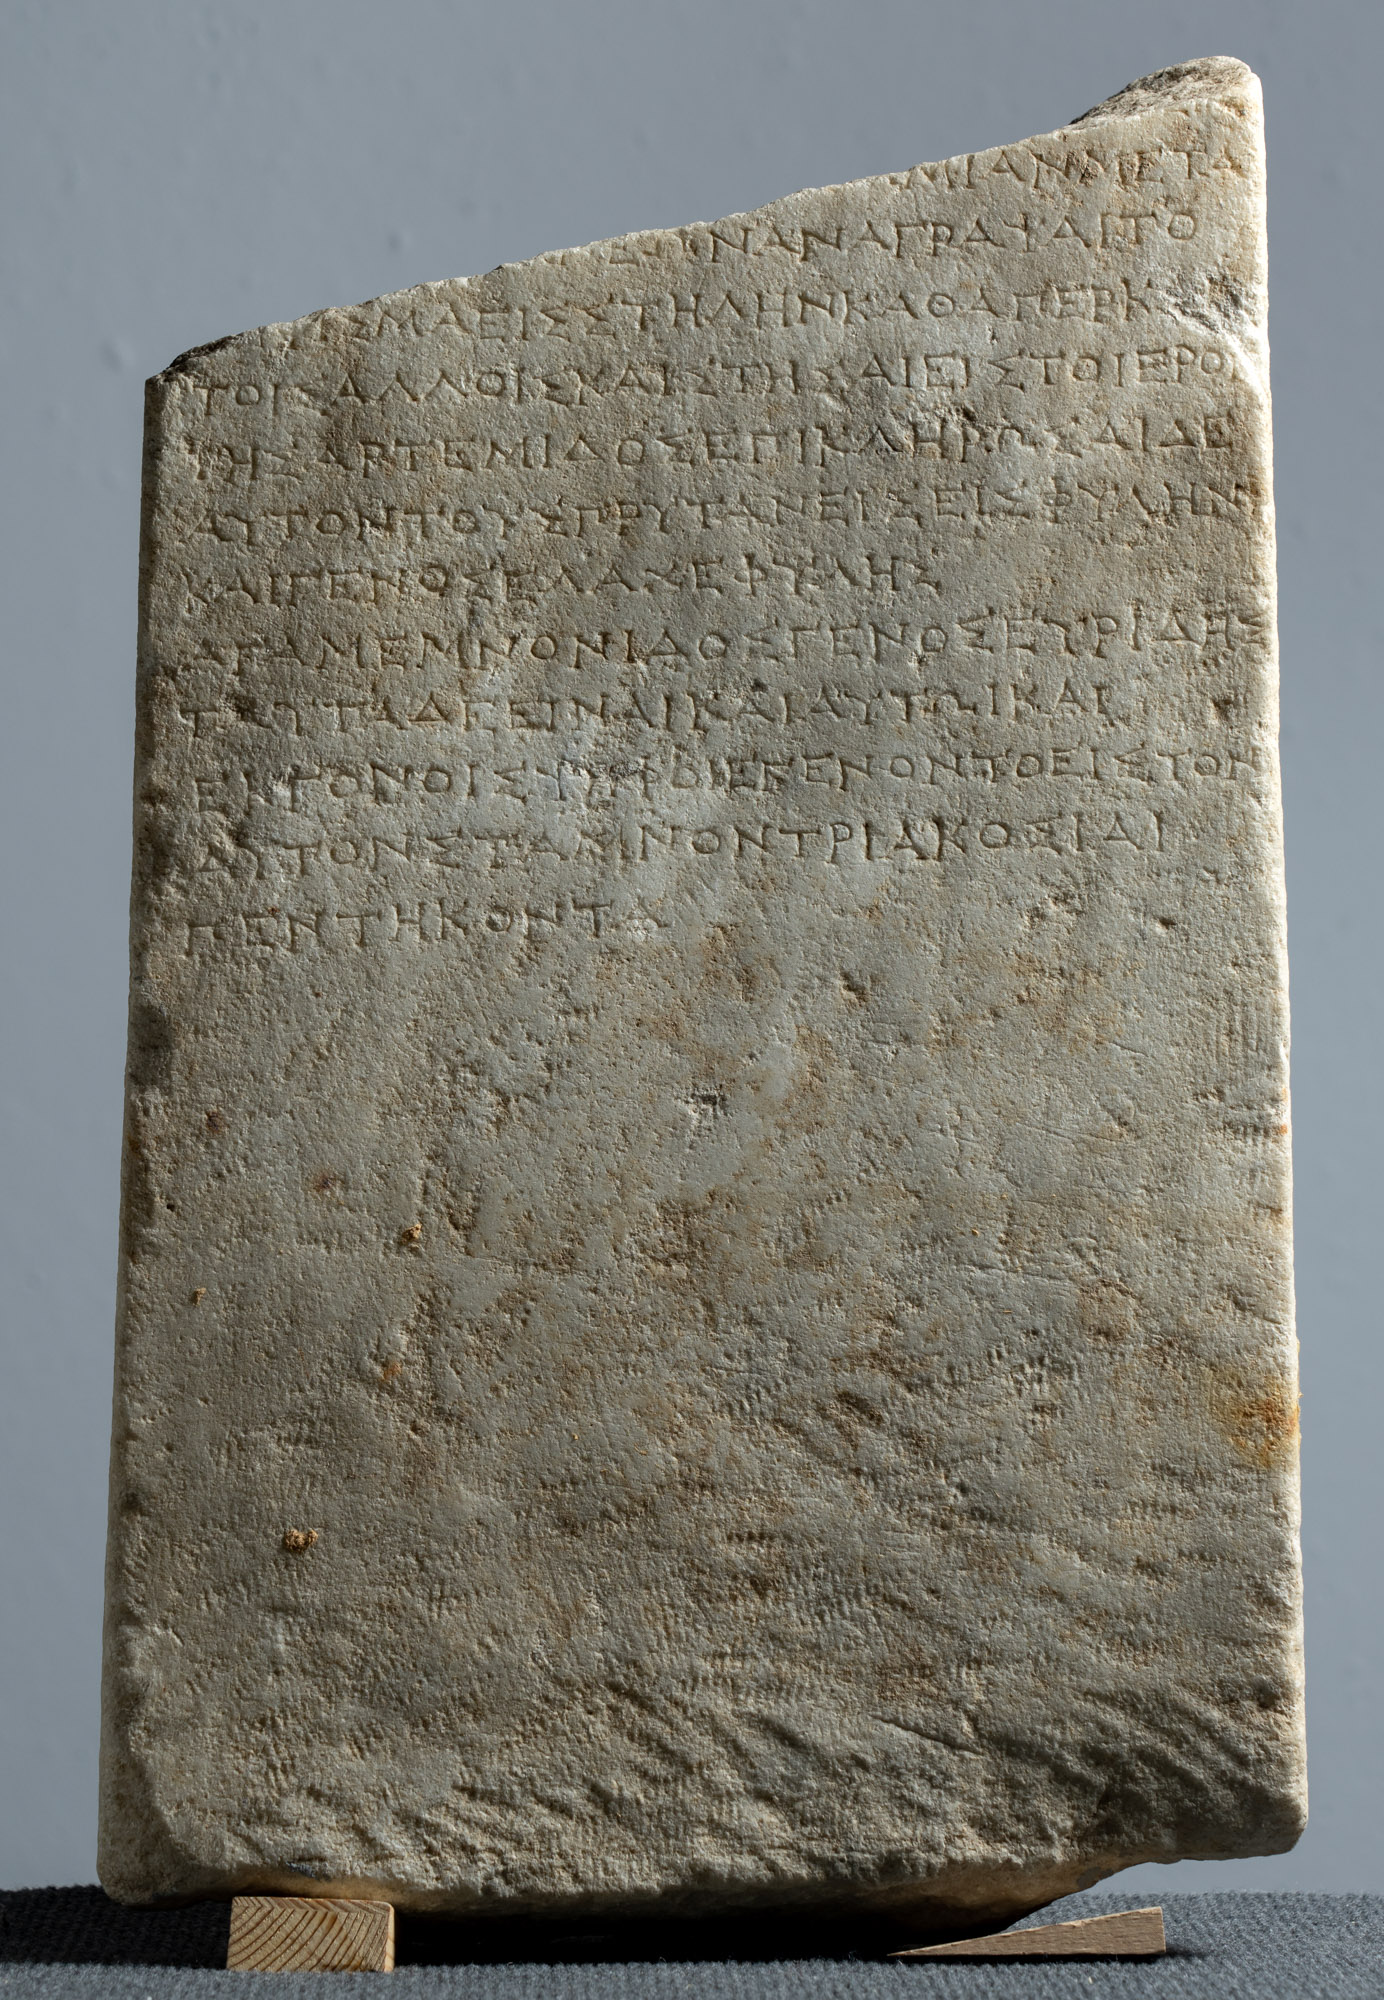 ΜΙΑΝ ΜΕΤΑ
ΩΝ ΑΝΑΓΡΑΨΑΙ ΤΟ
ΙΣΜΑ ΕΙΣ ΣΤΗΛΗΝ ΚΑΘΑΠΕΡ Κ
ΤΟΙΣ ΑΛΛΟΙΣ ΚΑΙ ΣΤΗΣΑΙ ΕΙΣ ΤΟ ΙΕΡΟΝ
ΤΗΣ ΑΡΤΕΜΙΔΟΣ ΕΠΙΚΛΗΡΩΣΑΙ ΔΕ
ΑΥΤΟΝ ΤΟΥΣ ΠΡΥΤΑΝΕΙΣ ΕΙΣ ΦΥΛΗΝ
ΚΑΙ ΓΕΝΟΣ ΕΛΑΧΕ ΦΥΛΗΣ
ΑΓΑΜΕΜΝΟΝΙΔΟΣ ΓΕΝΟΣ ΕΥΡΙΔΗΣ
ΤΑΥΤΑ Δ ΕΙΝΑΙ ΚΑΙ ΑΥΤΩΙ ΚΑΙ
ΕΚΓΟΝΟΙΣ ΨΗΦΟΙ ΕΓΕΝΟΝΤΟ ΕΙΣ ΤΟΝ
ΑΥΤΟΝ ΣΤΑΜΝΟΝ ΤΡΙΑΚΟΣΙΑΙ
ΠΕΝΤΗΚΟΝΤΑ